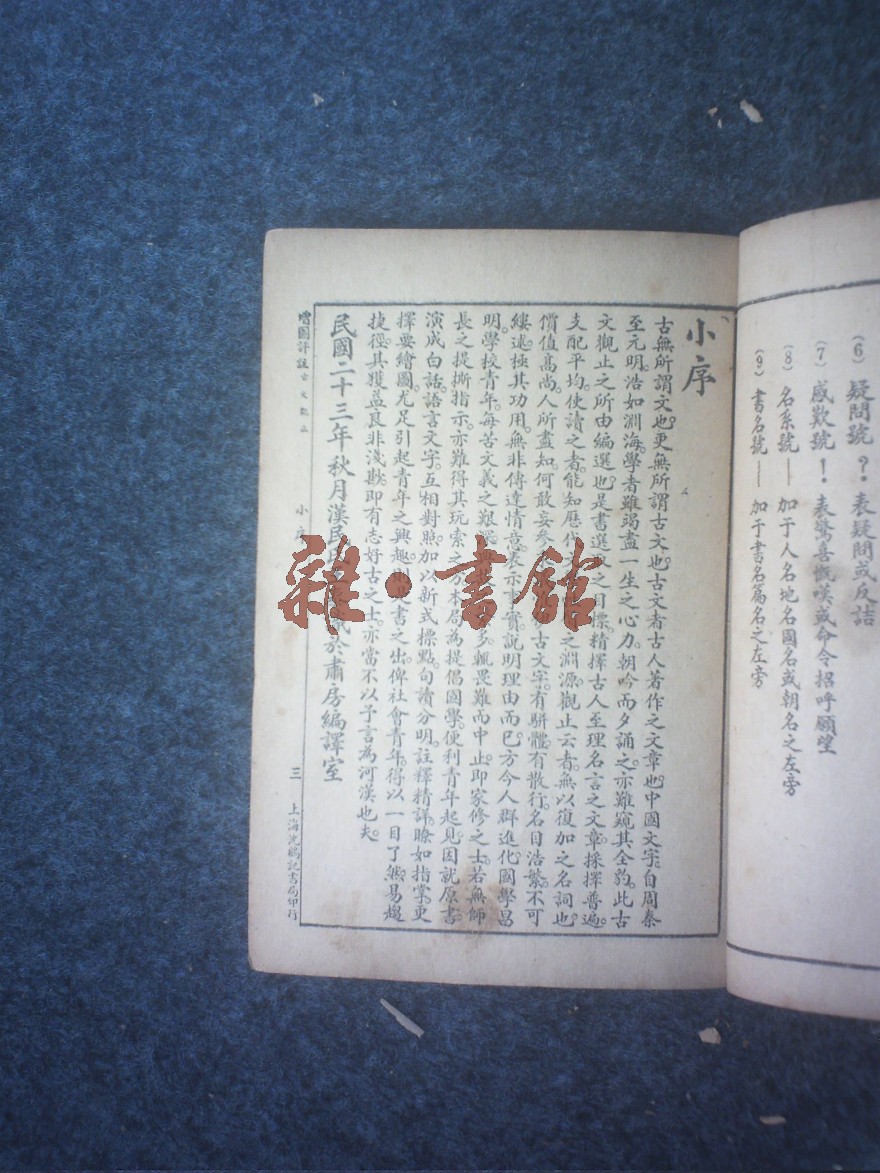 (6) 疑問號 ？：表疑問或反詰
(7) 感歎號 ！ 表驚喜慨嘆或命令招呼願望
(8) 名系號 —— 加于人名地名國名或朝名之左旁
(9) 書名號 —— 加于書名篇名之左旁
小序
古無所謂文也。更無所謂古文也。古文者古人著作之文章也。中國文字。自周秦
至元明。浩如淵海。學者雖竭盡一生之心力。朝吟而夕誦之。亦難窺其全豹。此古
文觀止之所由編選也。是書選以之目標。精擇古人至理名言之文章。採擇普遍。
支配平均。使讀之者。能知歷代之淵源。觀止云者。無以復加之名詞也。
價值高尚。人所盡知。何敢妄參古文字。有駢體。有散行。名目浩繁。不可
縷述。極其功用。無非傳達情意。表示事實。說明理由而已。方今人群進化。國學昌
明。學校青年。每苦文義之艱多。輒畏難而中止。即家修之士。若無師
長之提撕指示。亦難得其玩索之方。本局為提倡國學。便利青年起見。因就原書
演成白話。語言文字。互相對照。加以新式標點。句讀分明。註釋精詳。瞭如指掌。更
擇要繪圖。尤足引起青年之興趣。則是書之出。俾社會青年。得以一目了然。易趨
捷徑。其獲益良非淺尠。即有志好古之士。亦當不以予言為河漢也夫。
民國二十三年秋月漢民氏於肅房編譯室
增圖詳註古文觀止 小序 三 上海沈鶴記書局印行
雜·書館